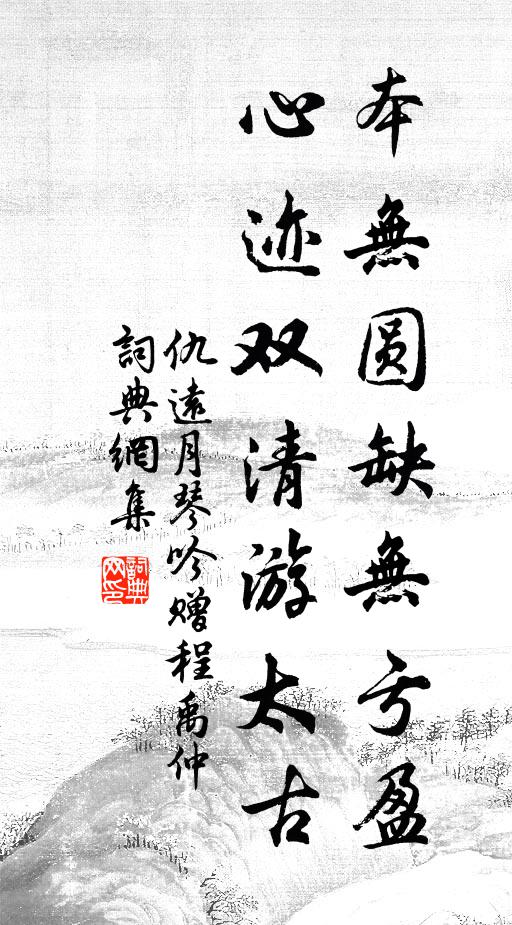 本無圆缺無亏盈
心迹双清游太古
仇遠月琴吟赠程禹仲
詞典網集
詞典
网印